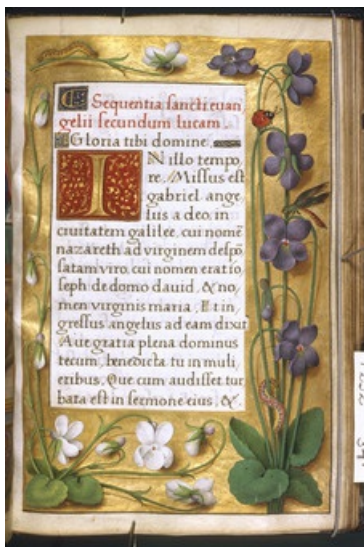 Sequentia sancti euan
gelii secundum lucam
Gloria tibi domine.
IN illo tempo
re. Missus est
gabriel ange
lus a deo, in
ciuitatem galilee, cui nomẽ
nazareth ad virginem despõ
satam viro, cui nomen erat io
seph de domo dauid, & no
men virginis maria. Et in
gressus angelus ad eam dixit
Aue gratia plena dominus
tecum, benedicta tu in muli
eribus, Que cum audisset tur
bata est in sermone eius, &